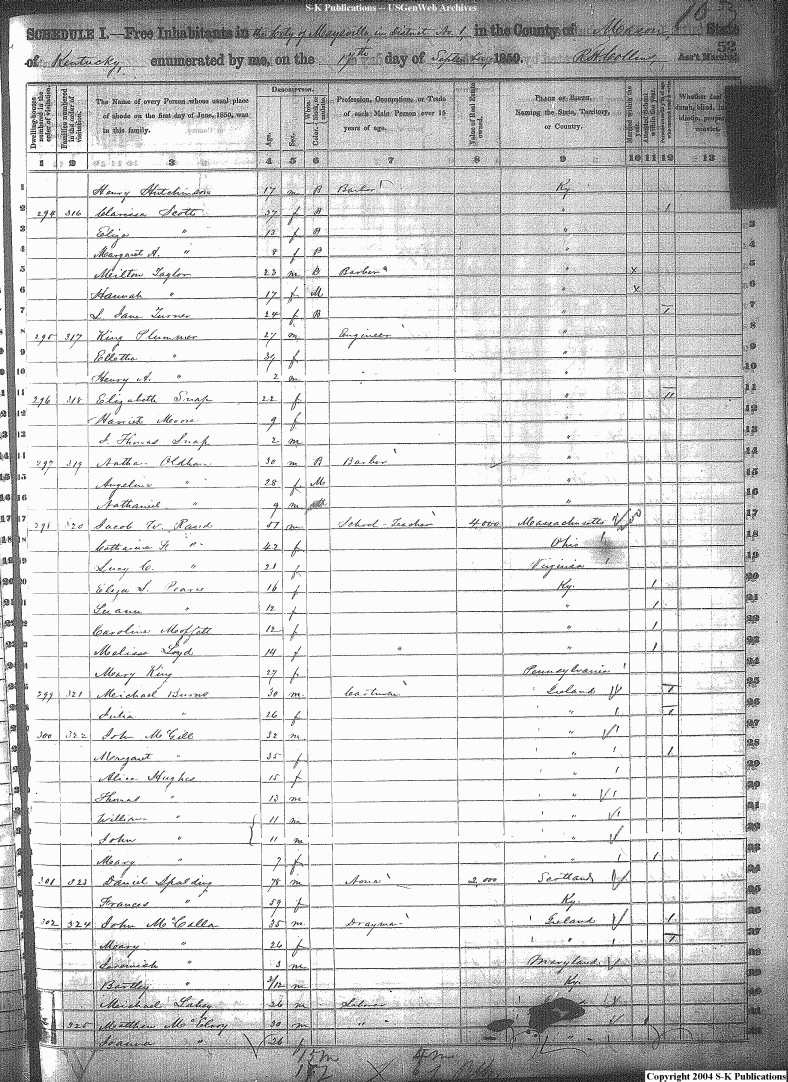 S-K Publications -- USGenWeb Archives
SCHEDULE I.—Free Inhabitants in the City of Maysville, in district No. 1, in the County of Mason State
of Kentucky, enumerated by me, on the 17th day of September, 1850. R. H. Collins Ass't Marshal
52
Dwelling-houses numbered in the order of visitation.
Families numbered in the order of visitation.
The Name of every Person whose usual place of abode on the first day of June, 1850, was in this family.
Description.
Age.
Sex.
Profession, Occupation, or Trade of each Male Person over 15 years of age.
Value of Real Estate owned.
Place of Birth, Naming the State, Territory, or Country.
1 2 3 4 5 6 7 8 9 10 11 12 13
Henry Hutchinson 17 m B Barber Ky
294 316 Clarissa Scott 37 f B " 1
Eliza " 13 f B "
Margaret A. " 8 f B "
Meilton Taylor 23 m B Barber " x
Hannah " 17 f M " x
S. Jane Turner 24 f B " 1
295 317 King Plummer 27 m Engineer "
" 39 f "
Henry A. " 2 m "
296 318 Elizabeth Snap 22 f "
Harriet Moore 9 f "
J. Thomas Snap 2 m "
297 319 Nathan Oldham 30 m B Barber "
Angeline " 28 f M "
Nathaniel " 9 m "
298 320 Jacob W. Rand 57 m School-Teacher 4,000 Massachusetts
Catharine F. " 42 f Ohio
Lucy C. " 21 f Virginia
Eliza S. Pearce 16 f Ky. 1
Lu ann " 12 f " 1
Caroline Moffett 12 f " 1
Melissa Loyd 14 f " " 1
Mary King 27 f Pennsylvania
299 321 Meichael Burns 30 m Cartman Ireland 1
Julia " 26 f " 1
300 322 John McGill 32 m "
Margaret " 35 f " 1
Alice Hughes 15 f "
Thomas " 13 m "
William " 11 m "
John " 11 m "
Mary " 7 f " 1
301 323 Daniel Spalding 78 m None 2,000 Scotland
Frances " 59 f Ky.
302 324 John McCalla 35 m Drayman Ireland 1
Mary " 26 f " 1
Jeremiah " 3 m Maryland
Bartley " 3/12 m Ky.
Meichael 26 m
325 Matthew McElroy 30 m "
Joanna " 26 f "
Copyright 2004 S-K Publications